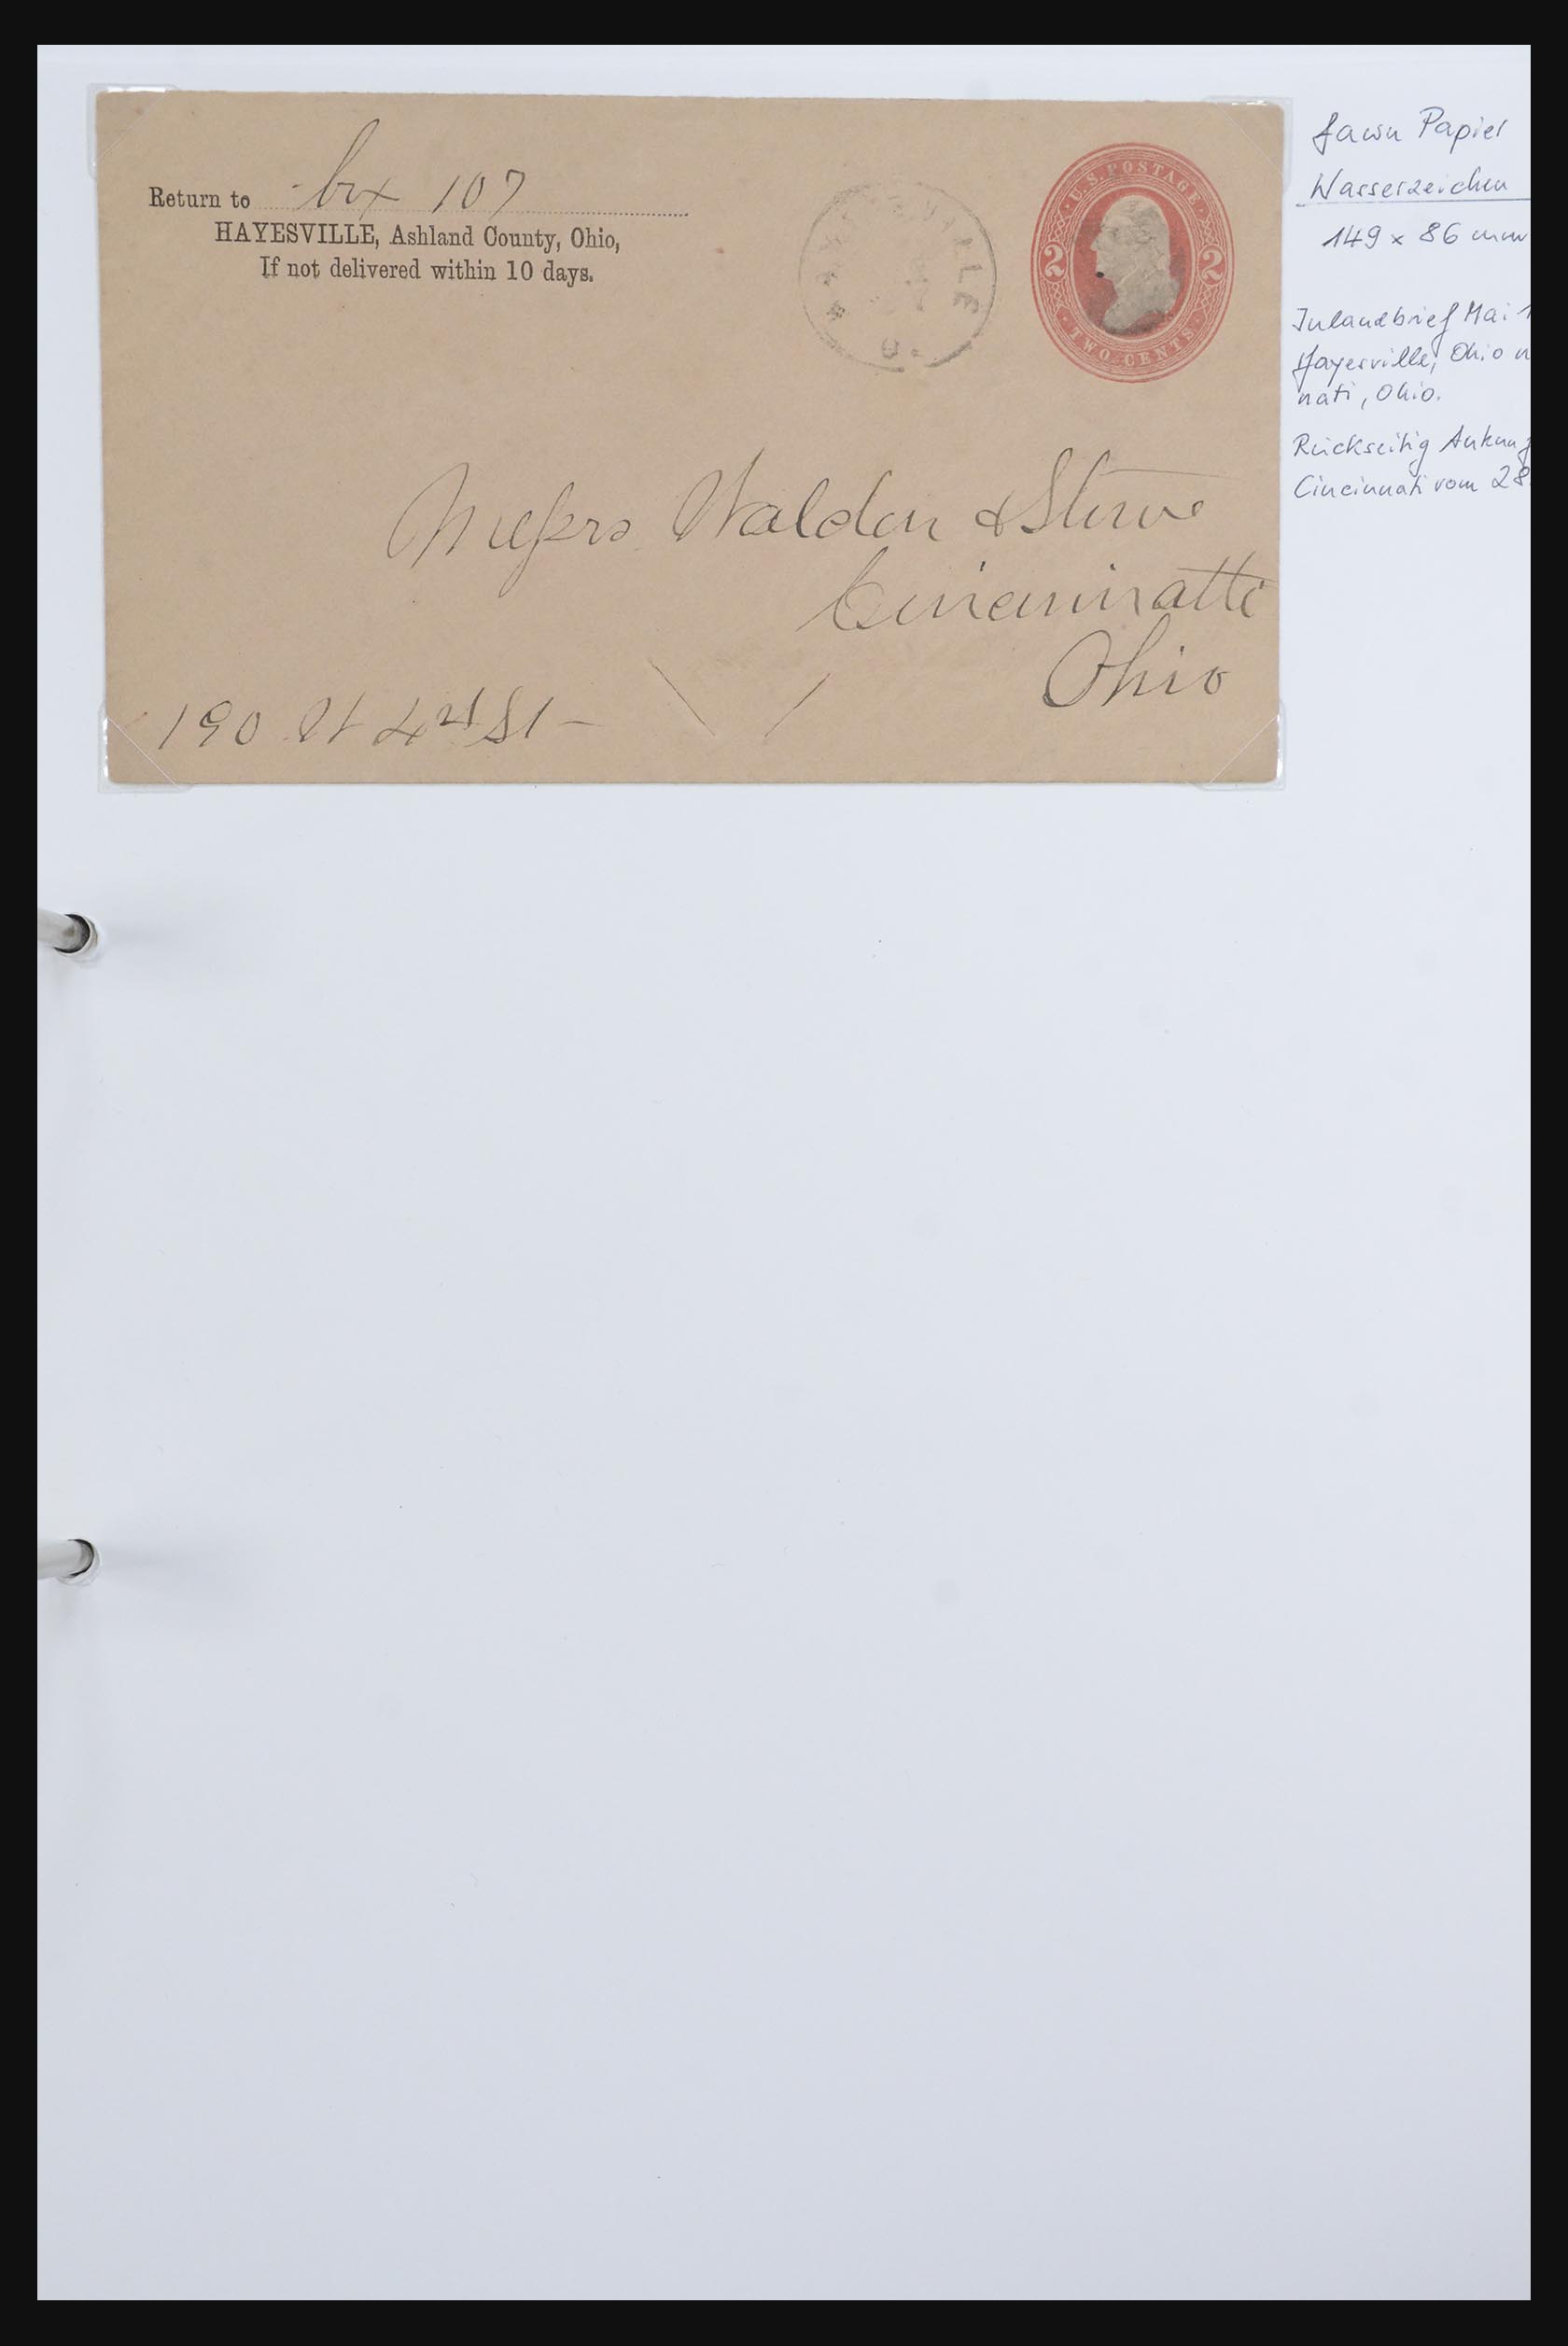 Return to box 107
HAYESVILLE, Ashland County, Ohio,
If not delivered within 10 days.
HAYESVILLE
O.
U.S. POSTAGE
2 2
TWO CENTS
Messrs Walden & Stowe
Cincinnatti
Ohio
190 W 4th St
fawn Papier
Wasserzeichen
149 x 86 mm
Inlandbrief Mai 1
Hayesville, Ohio n
nati, Ohio.
Rückseitig Ankunf
Cincinnati vom 28.